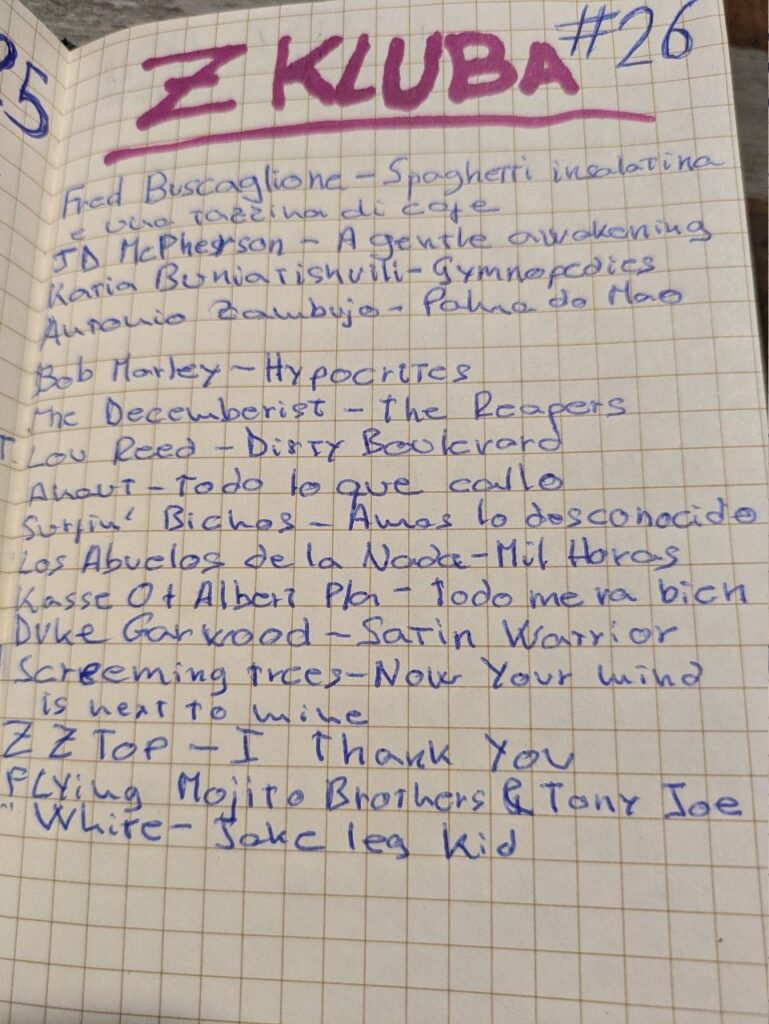 25
Z KLUBA #26
Fred Buscaglione - Spaghetti insalatina
e una tazzina di cafe
JD McPherson - A gentle awakening
Katia Buniatishvili - Gymnopedies
Antonio Zambujo - Palma do Mao
Bob Marley - Hypocrites
The Decemberist - The Reapers
Lou Reed - Dirty Boulevard
Anout - Todo lo que callo
Surfin' Bichos - Amas lo desconocido
Los Abuelos de la Nada - Mil Horas
Kasse Ot Albert Pla - Todo me va bien
Duke Garwood - Satin Warrior
Screeming trees - Now Your mind
is next to mine
ZZ Top - I Thank You
Flying Mojito Brothers & Tony Joe
White - Jake leg kid